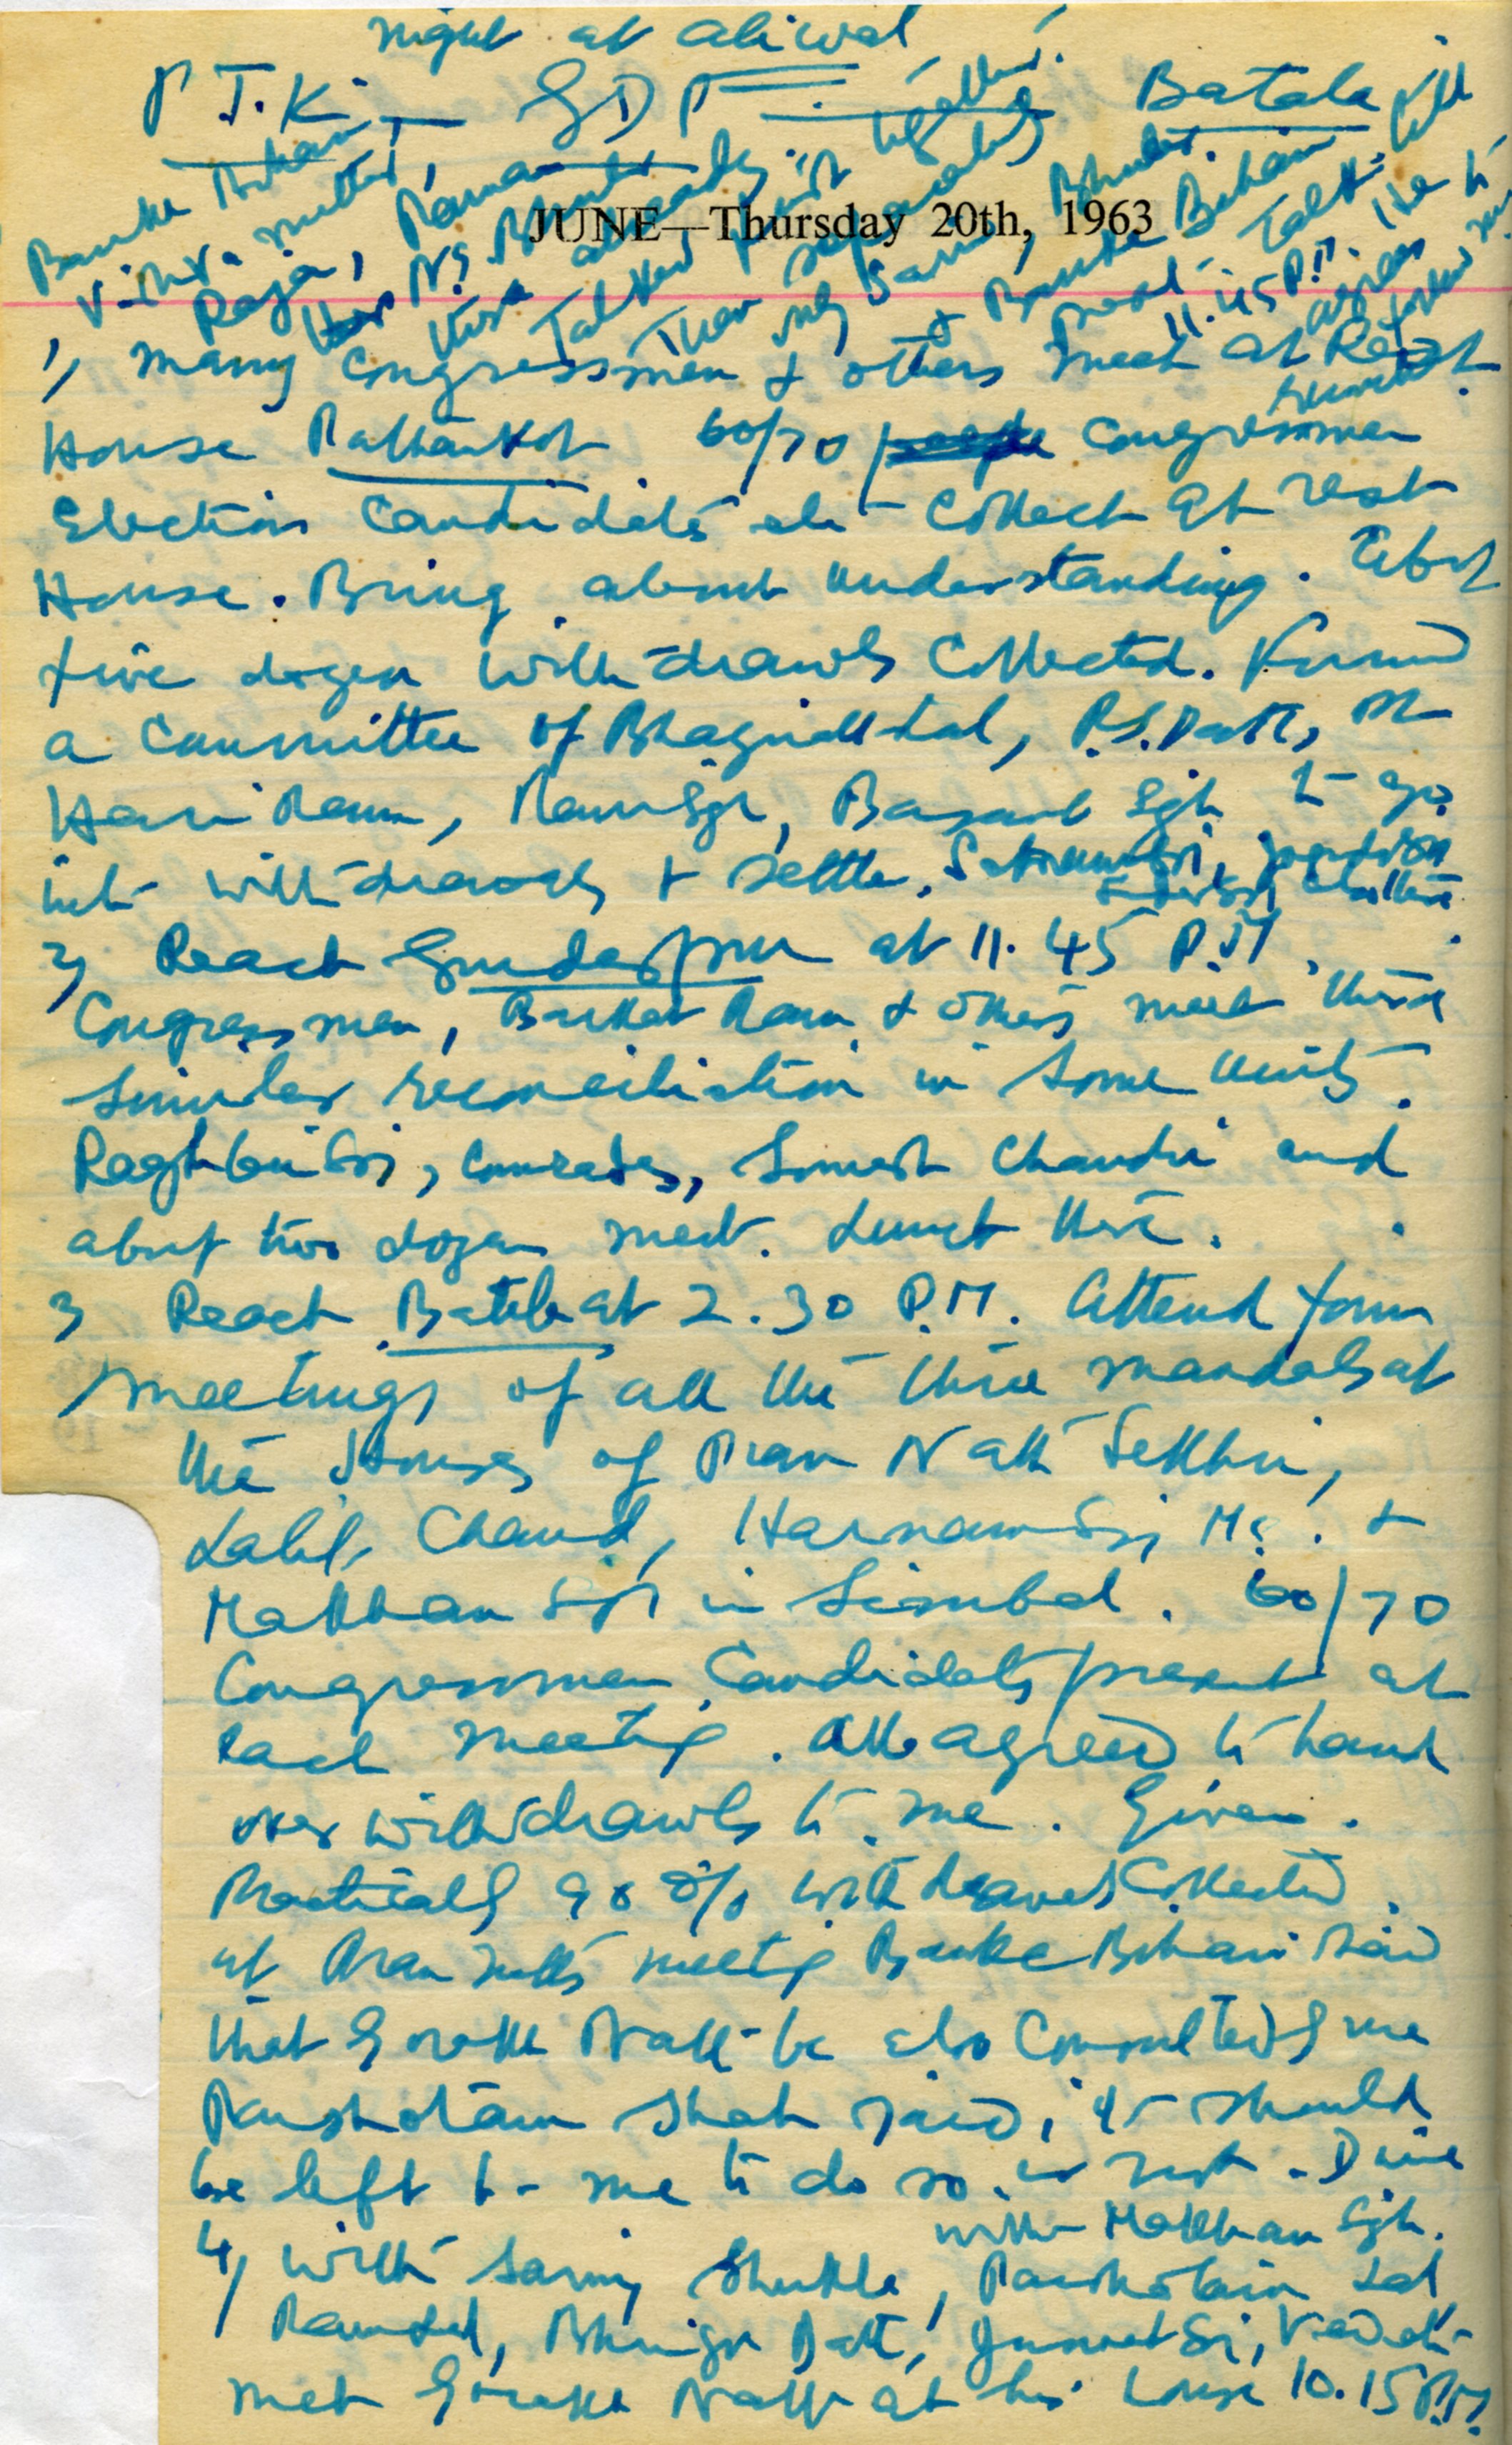 night at aliwal
P T.K. — G D P Batala
JUNE—Thursday 20th, 1963
Banke Bihari
Vishwa mitter,
Raja, Raman
N.S. Bhulr
there already.
Talked first together.
Then separately
My Sami, Bhuler.
& Banke Bihari
Talk till
11.45 P.M. He
agrees
1) many Congressmen & others meet at Rest
House Pathankot 60/70 people Congressmen
Election Candidates etc collect at rest
House. Bring about understanding. Abot
five dozen with drawls collected. Formed
a Committee of Bhagwat Lal, P.S. Datt,
Hari Ram, Ram Sgh, Basant Sgh to go
into withdrawls & settle.
2) Reach Gurdaspur at 11.45 P.M.
Congressmen, Barkat Ram & others meet there
Similar reconciliation in some units.
Raghbir Sgi, Comrades, Somesh Chander and
about two dozen meet. Lunch there.
3 Reach Batala at 2.30 P.M. Attend four
meetings of all the three mandals at
the Houses of Pran Nath Sekhri,
Labh Chand, Harnam Sgi MS. &
Makhan Sgh in Simbal. 60/70
Congressmen Candidates present at
each meeting. All agreed to hand
over withdrawls to me. Given.
Practically 90 % withdrawls Collected.
at Pran Nath's meeting Banke Bihari said
that Gorakh Nath be also Consulted &
Parshotam Shah said, it should
be left to me to do so or not. Dine
with Makhan Sgh.
4) With Samy Shukla, Parshotam Lal
Ram Lal, Bhrigu Datt, Gurmet Si,
met Gorakh Nath at his house 10.15 P.M.